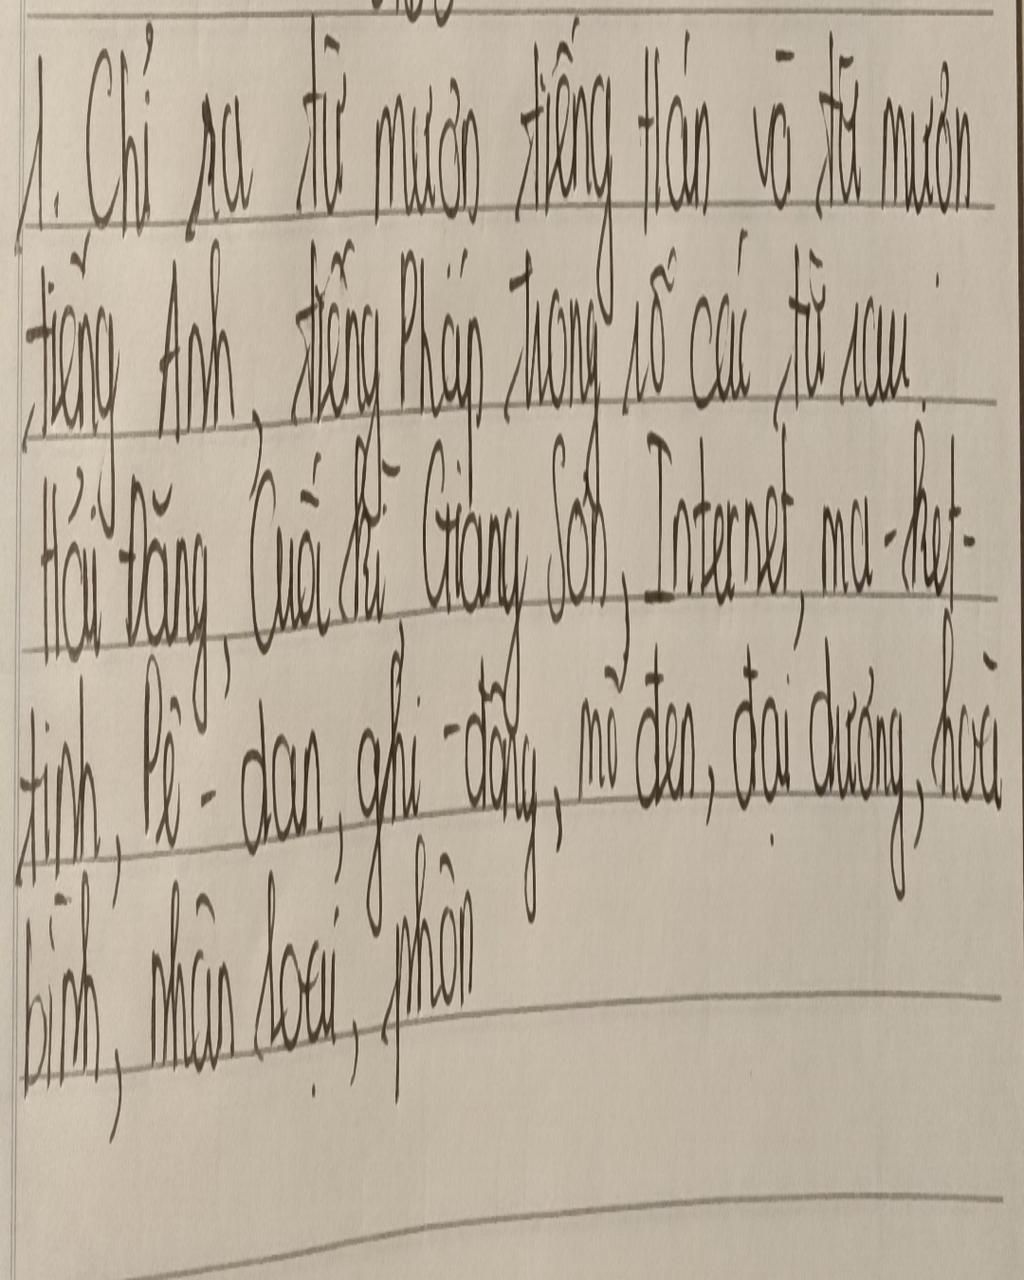 1. Chỉ ra từ mượn tiếng Hán và từ mượn
tiếng Anh, tiếng Pháp trong số các từ sau.
Hải Đăng, Cuối kì Giang Sơn, Internet, ma-ket-
tinh, Pê-dan, ghi-đông, mở đen, đại dương, hoà
bình, nhân loại, phôn